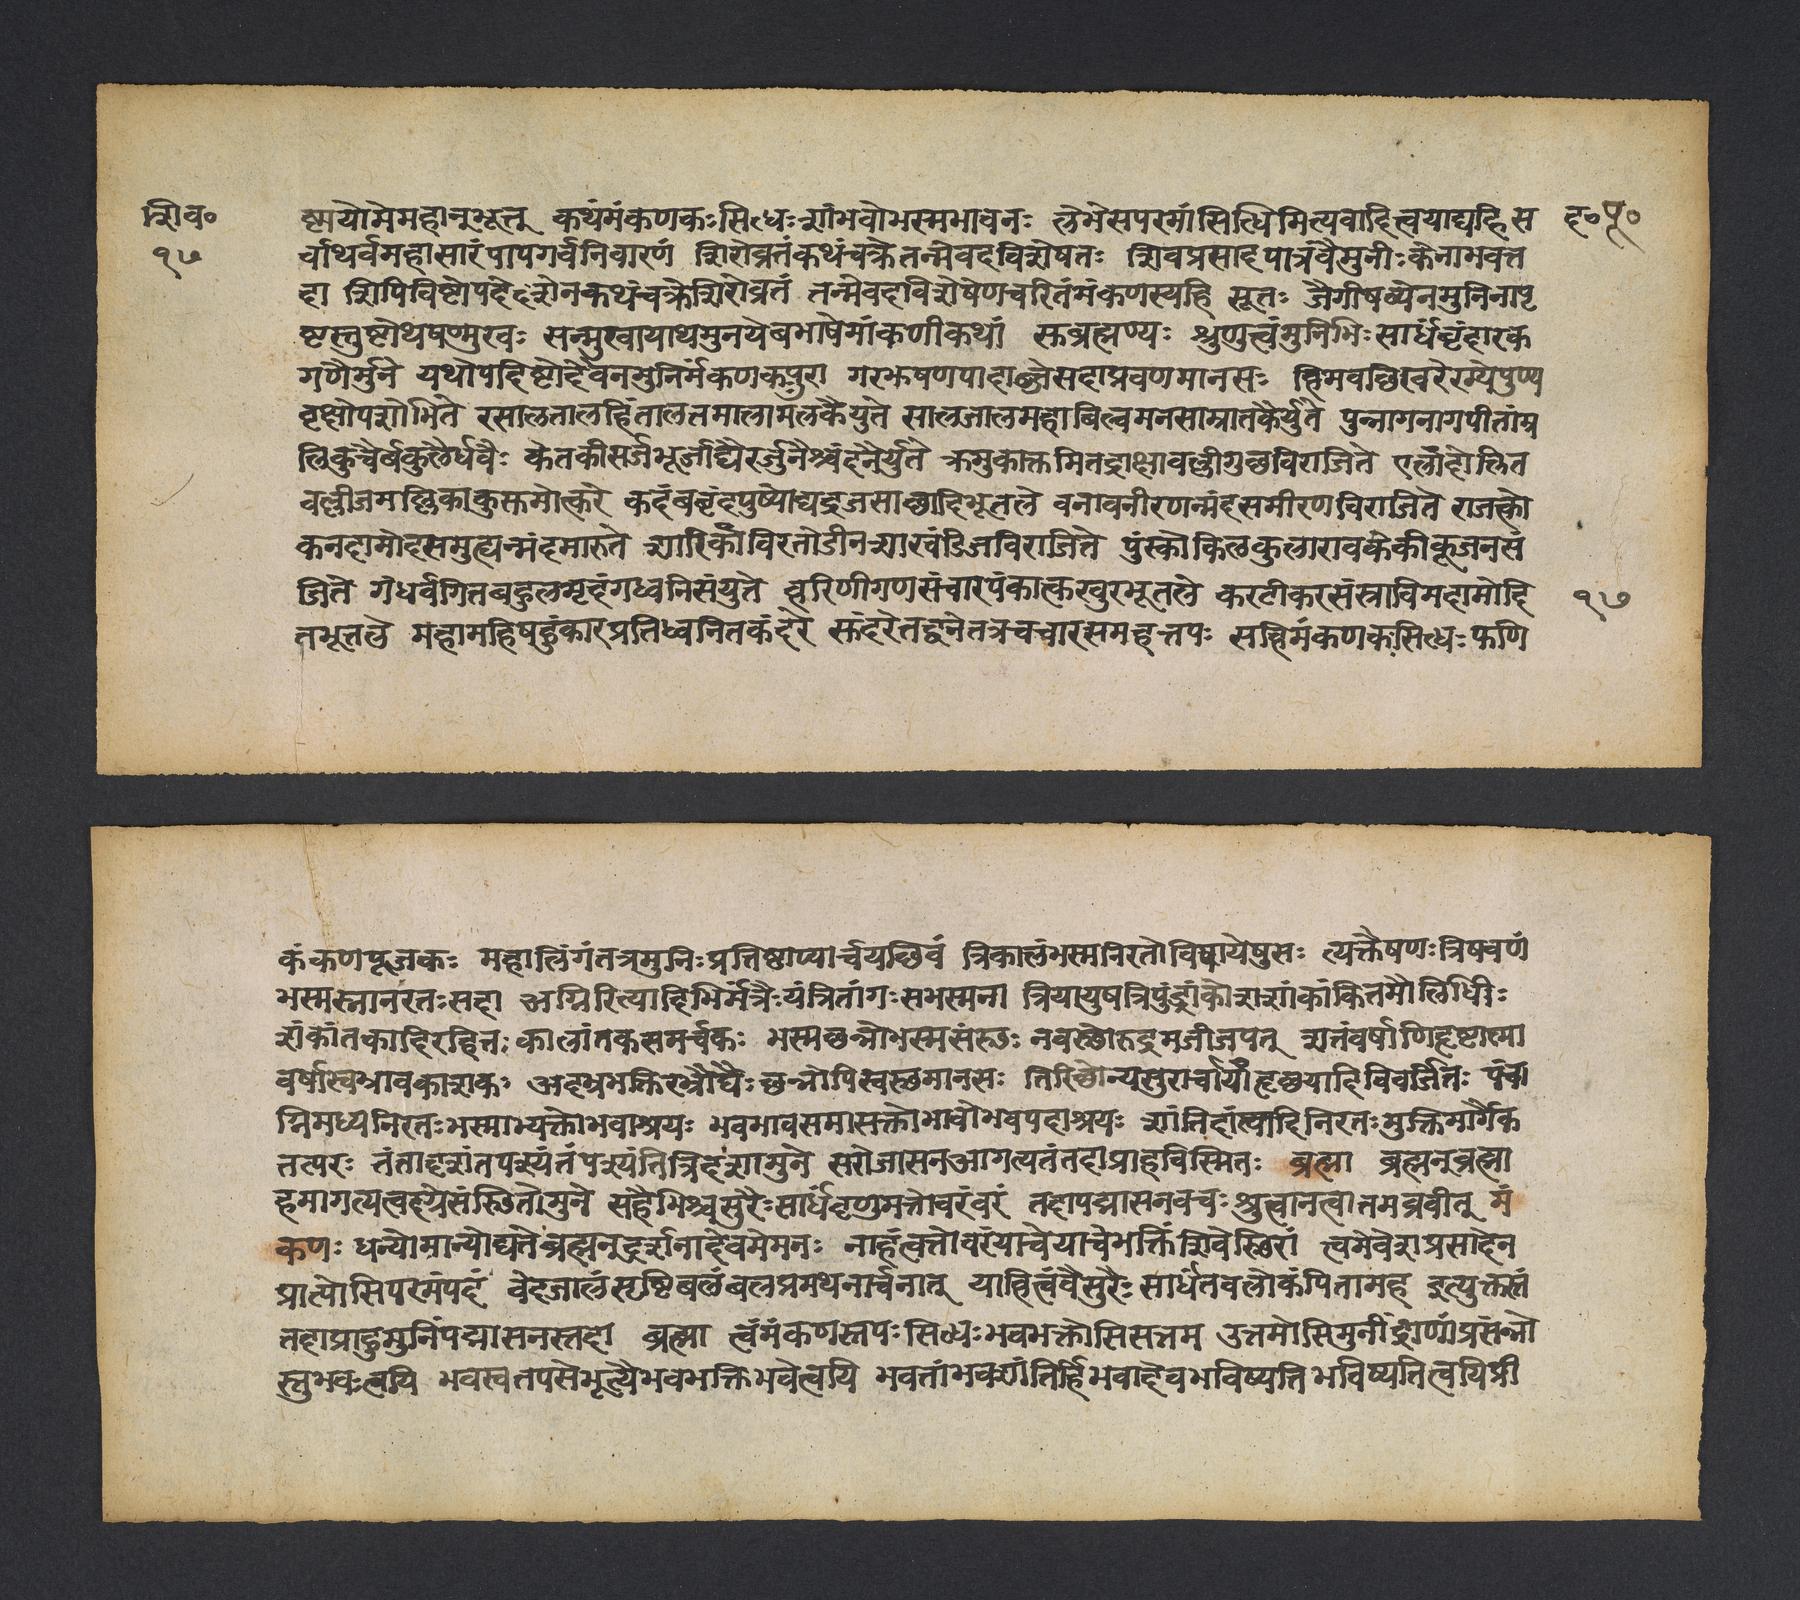 शिव॰
१७
ह॰पू॰
ष्मायोमेमहानुभूत्तु कथंमंकणकःसिध्धःशांभवोभस्मभावनः लेभेसपरमांसिध्धिमित्यवादित्वयाद्यहिस
र्वाथर्वमहासारंपापगर्वनिवारणं शिरोव्रतंकथंचक्रेतन्मेवदविशेषतः शिवप्रसादपात्रंवैमुनीःकेनाभवत्त
दा शिपिविष्टोपदेदशेनकथंचक्रेशिरोव्रतं तन्मेवदविशेषेणचरितंमंकणस्यहि सूतः जैगीषव्येनमुनिनापृ
ष्टस्तुष्टोथषण्मुखः सन्मुखायाथमुनयेबभाषेमांकणीकथां स्कब्रह्मण्यः श्रुणुत्वंमुनिभिःसार्धंवृंदारक
गणैर्मुने यथोपदिष्टोदेवेनमुनिर्मंकणकपुरा गरभषणपादाब्जेसदाप्रवणमानसः हिमवच्छिखरेरम्येपुण्य
वृक्षोपशोभिते रसालतालहिंतालतमालामलकैयुते सालजालमहाबिल्वमनसाम्रातकैर्युते पुन्नागनागपीताम्र
लिकुचैर्बकुलैर्धवैः केतकीसर्जभूर्जाद्यैरर्जुनैश्चंदनैर्युते क्रमुकाक्तमितद्राक्षावल्लीगुछविराजिते एलांदोलित
वल्लीजमल्लिकाकुस्तमोत्करे कदंबवृंदपुष्पोद्यद्रजसाछादिभूतले वनावनीरणन्मंदसमीरणविराजिते राजत्को
कनदामोदसमुद्यन्मंदमारुते शारिकाविरतोडीनशाखंडिजविराजिते पुंस्कोकिलकुलारावकेकीकूजनसं
जिते गंधर्वगितबहुलमृदंगध्वनिसंयुते हरिणीगणसंचारपंकात्कखुरभूतले करटीकरसंस्राविमहामोदि
१७
तभूतले महामहिषहुंकारप्रतिध्वनितकंदरे स्कंदरेतद्वनेतत्रचचारसमहत्तपः सहिमंकणकःसिध्धःफणि
कंकणपूजकः महालिंगंतत्रमुनिःप्रतिष्ठाप्यार्चयछिवं त्रिकालंभस्मनिरतोविषायेषुसः त्यक्तैषणःत्रिषवणं
भस्मस्नानरतःसदा अग्निरित्यादिभिर्मंत्रैःयंत्रितांगःसभस्मना त्रियायुषत्रिपुंड्रांकोशशांकांकितमौलिधीः
शंकांतकादिरहितः कालांतकसमर्चकः भस्मछन्नोभस्मसंस्छः नवस्छोरुद्रमजीजपत् शतंवर्षाणिहृष्टात्मा
वर्षास्वभ्रावकाशकः अदभ्रभक्तिरभ्रौघैः छन्नोपिस्वस्छमानसः तिरिछोन्यसुरार्चायांहृछयादिविवर्जितः पंचा
ग्निमध्यनिरतःभस्माभ्यक्तोभवाश्रयः भवभावसमासक्तोभावोभवपदाश्रयः शांतिदांत्यादिनिरतःमुक्तिमार्गैक
तत्परः तंतादृशंतपस्यंतंपश्यंतित्रिदशामुने सरोजासनआगत्यतंतदाप्राहविस्मितः ब्रह्मा ब्रह्मन्ब्रह्मा
हमागत्यत्वदग्रेसंस्छितोमुने सहैभिश्चसुरैःसार्धंवृणुमत्तोवरंवरं तदापद्मासनवचः श्रुत्वानत्वातमब्रवीत् मं
कणः धन्योमान्योद्यतेब्रह्मन्दर्शनादेवमेमनः नाहंत्वत्तोवरंयाचेयाचेभक्तिंशिवेस्छिरां त्वमेवेशप्रसादेन
प्राप्तोसिपरमंपदं वेदजालंसृष्टिबलंबलप्रमथनार्चनात् याहित्वंवैसुरैः सार्धंतवलोकंपितामह इत्युक्तस्तं
तदाप्राहुमुनिंपद्मासनस्तदा ब्रह्मा त्वंमंकणस्तपःसिध्धःभवभक्तोसिसत्तम उत्तमोसिमुनींद्राणांप्रसन्नो
स्तुभवःत्वयि भवस्वतपसेभूत्यैभवभक्तिभवेत्वयि भवतांभवशांतिर्हिभवादेवभविष्यति भविष्यतित्वयिप्री